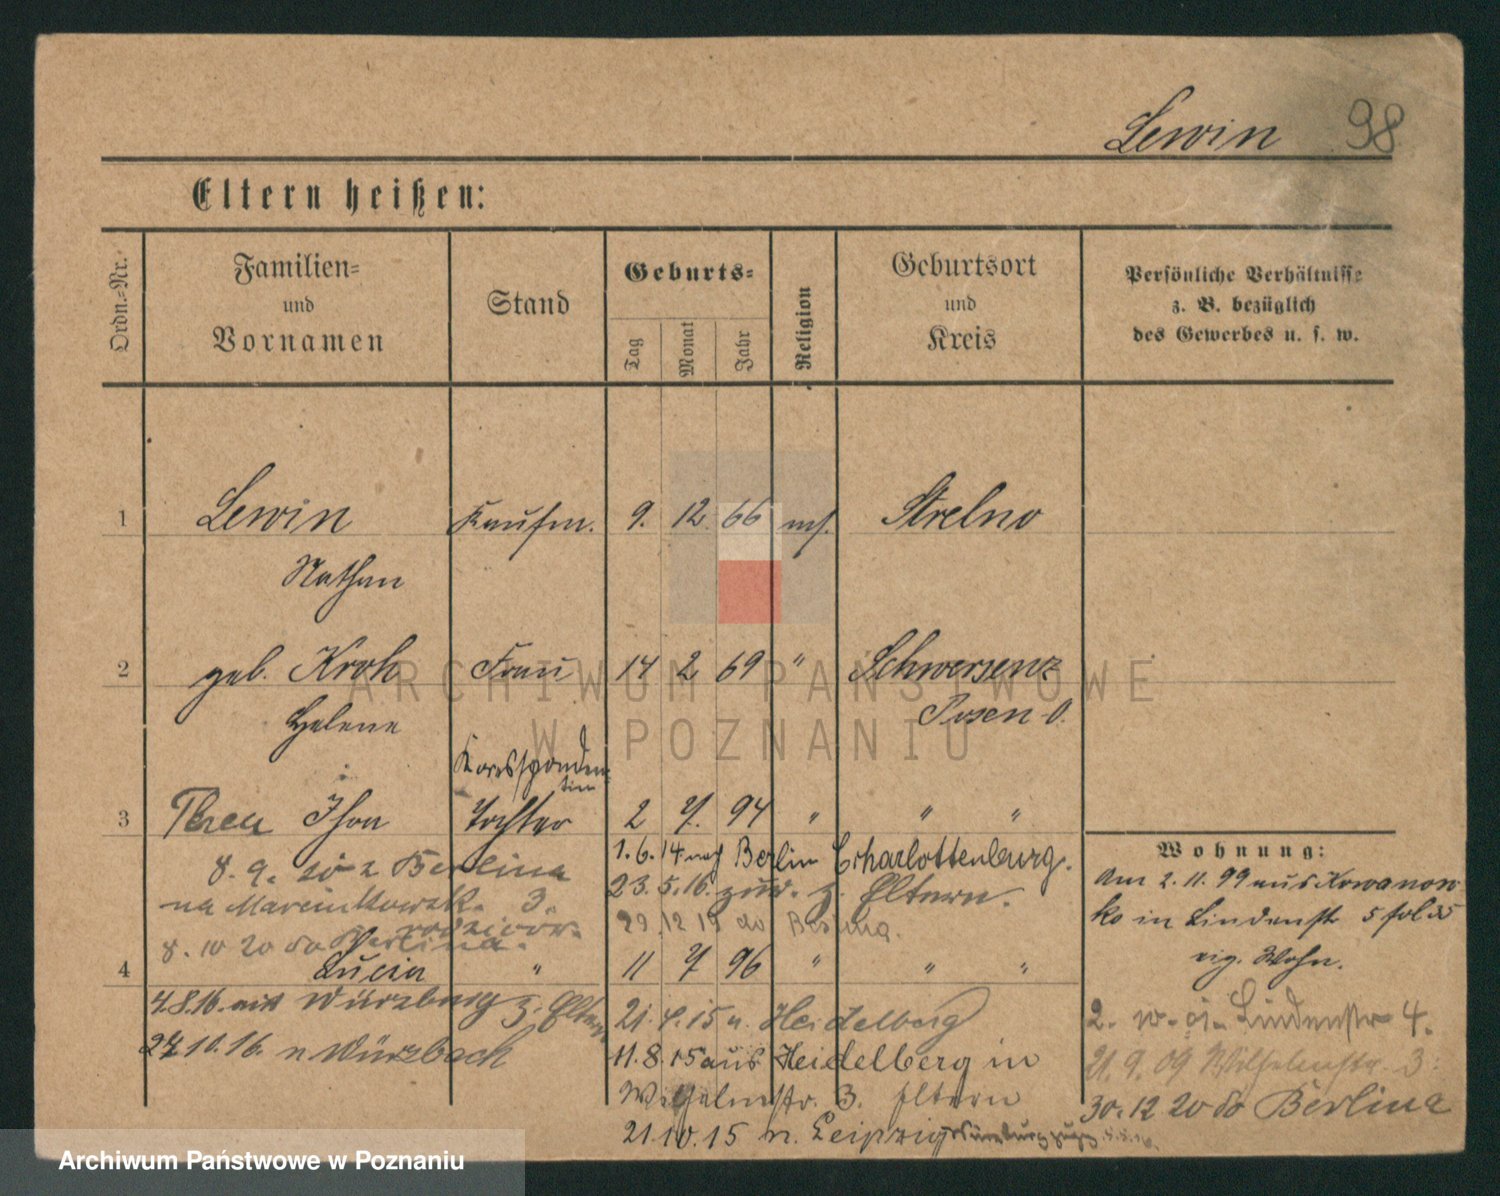 Lewin 98
Eltern heißen:
Ordn.-Nr.
Familien-
und
Vornamen
Stand
Geburts-
Tag
Monat
Jahr
Religion
Geburtsort
und
Kreis
Persönliche Verhältnisse
z. B. bezüglich
des Gewerbes u. s. w.
1 Lewin Kaufm. 9. 12 66 Strelno
Nathan
2 geb. Kroh Frau 14 2 69 " Schwersenz
Helene Posen O.
Korrespondentin
3 Thea Tochter 2 7. 94 " " "
1.6.14 nach Berlin Charlottenburg.
8. 9. Berlina
23.5.16. zur. z. Eltern.
na Marcinkowsk. 3.
29.12 19 do Berlina.
rodziców.
8. 10 20 do Berlina.
4 Lucia " 11 7 96 " " "
4.8.16. aus Würzburg z. Eltern
27.10.16. n Würzbach
21.4.15 n. Heidelberg
11.8.15 aus Heidelberg in
Wilhelmstr. 3. Eltern
21.10.15 n. Leipzig
Wohnung:
Am 2.11.99 aus Kowanow
ko in Lindenstr 5
eig. Wohn.
2. Lindenstr 4.
21.9.09 Wilhelmstr. 3.
30.12 20 do Berlina
ARCHIWUM PAŃSTWOWE
W POZNANIU
Archiwum Państwowe w Poznaniu